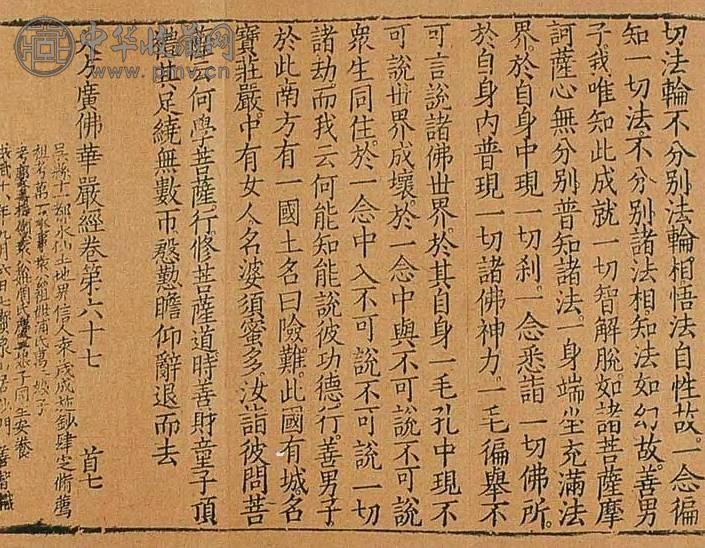 切法輪不分別法輪相悟法自性故一念徧
知一切法不分別諸法相知法如幻故善男
子我唯知此成就一切智解脫如諸菩薩摩
訶薩心無分別普知諸法一身端坐充滿法
界於自身中現一切刹一念悉詣一切佛所
於自身內普現一切諸佛神力一毛徧舉不
可言說諸佛世界於其自身一毛孔中現不
可說世界成壞於一念中與不可說不可說
眾生同住於一念中入不可說不可說一切
諸劫而我云何能知能說彼功德行善男子
於此南方有一國土名曰險難此國有城名
寶莊嚴中有女人名婆須蜜多汝詣彼問菩
薩云何學菩薩行修菩薩道時善財童子頂
禮其足繞無數帀慇懃瞻仰辭退而去
大方廣佛華嚴經卷第六十七 首七
吳縣十一都水仙土地界信人朱茂成抽鈔肆定脩薦
祖考萬
中华收藏网
www.pmv.cn